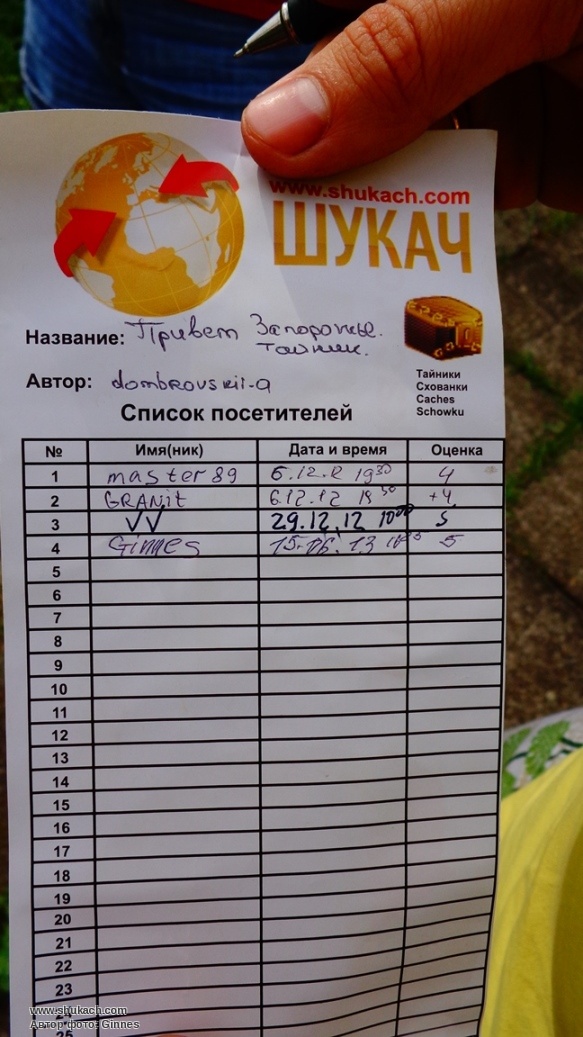 www.shukach.com
ШУКАЧ
Название: Привет Запорожье.
тайник.
Автор: dombrovskii-a
Тайники
Сховანки
Caches
Schowku
Список посетителей
№ Имя(ник) Дата и время Оценка
1 master89 6.12.12 19 30 4
2 GRANit 6.12.12 19 30 +4
3 VV 29.12.12 10 00 5
4 Ginnes 15.06.13 5
5
6
7
8
9
10
11
12
13
14
15
16
17
18
19
20
21
22
23
24
25
www.shukach.com
Автор фото: Ginnes